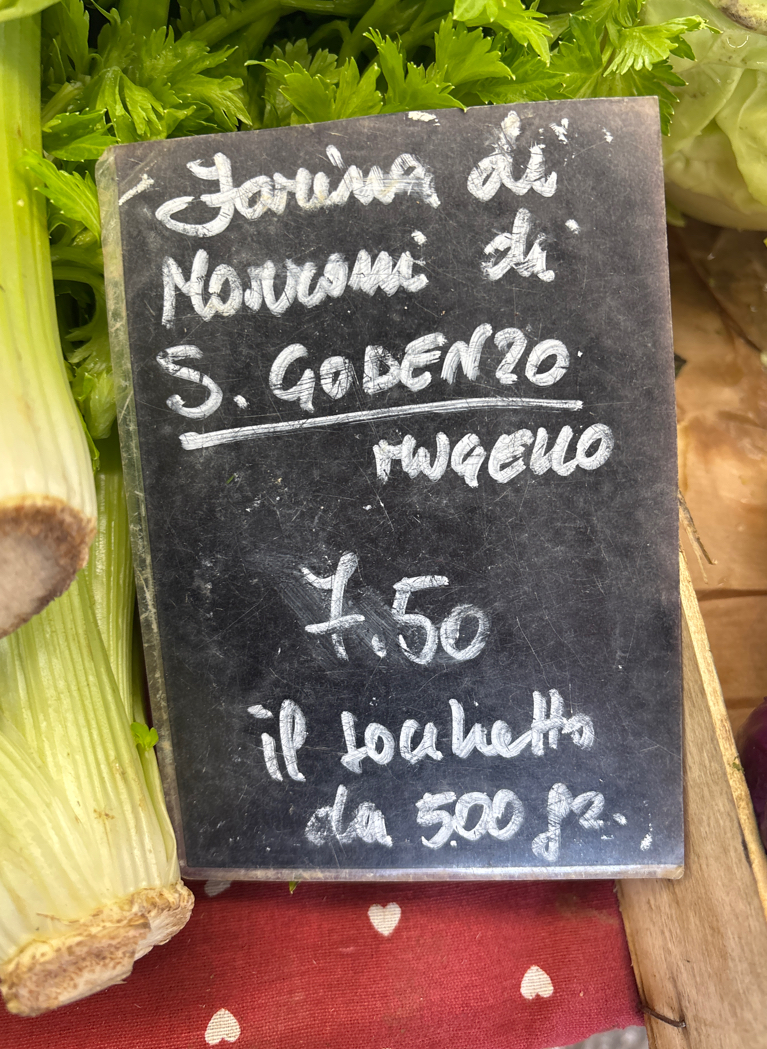 Farina di
Marroni di
S. GODENZO
MUGELLO
7.50
il sacchetto
da 500 gr.